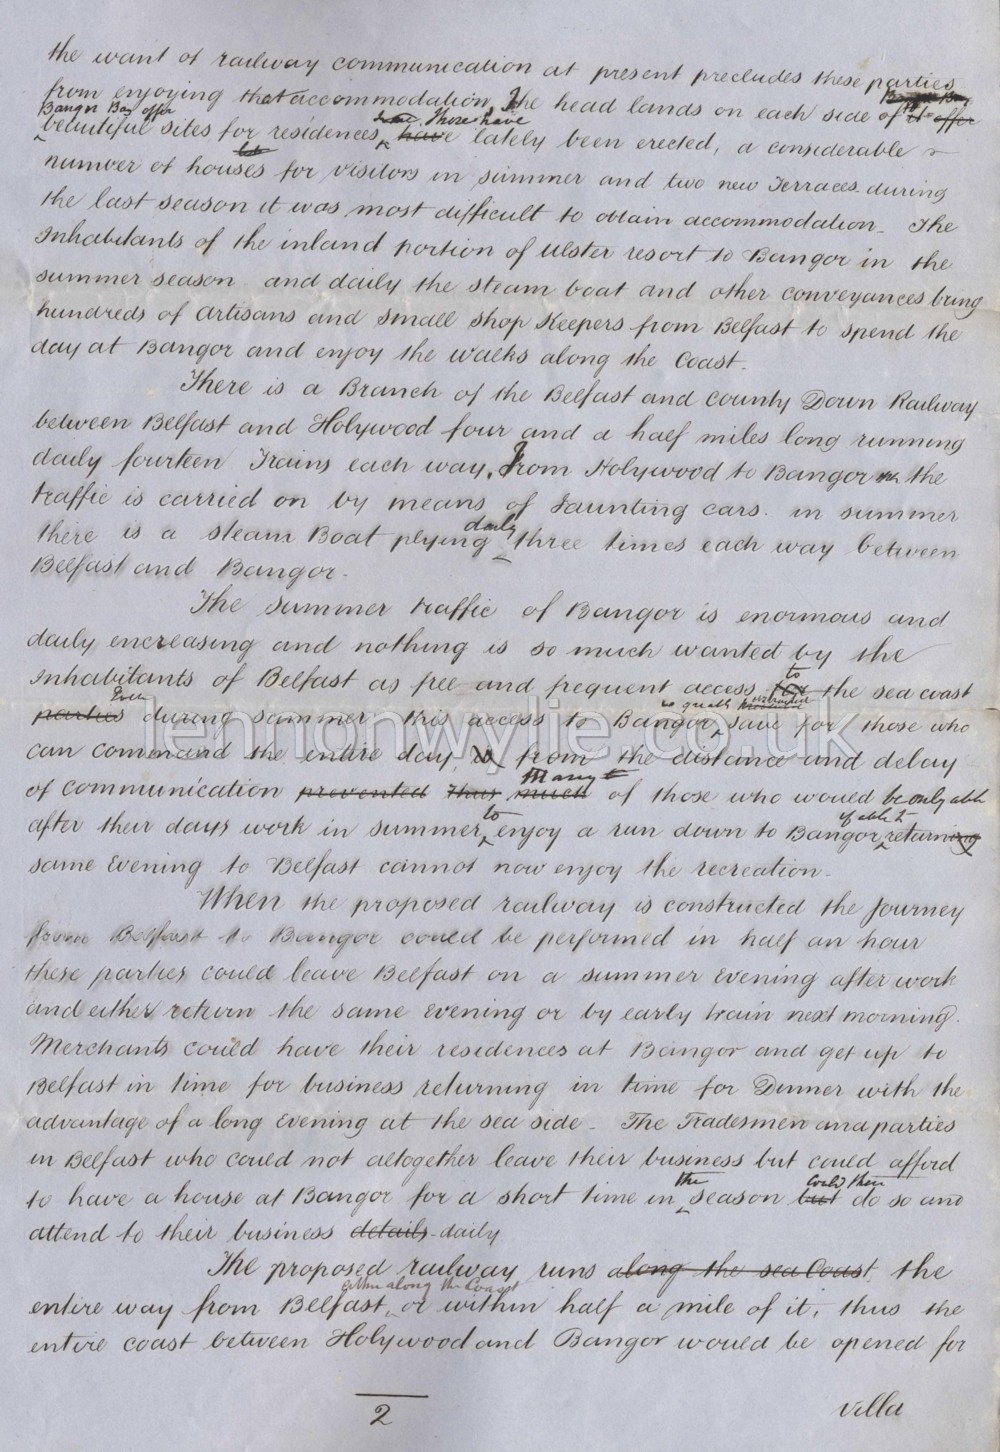 the want of railway communication at present precludes these parties
from enjoying that accommodation, The head lands on each side of it offer
Bangor Bay offer
beautiful sites for residences, Those have have lately been erected, a considerable
number of houses for visitors in summer and two new Terraces. during
the last season it was most difficult to obtain accommodation. The
Inhabitants of the inland portion of Ulster resort to Bangor in the
summer season and daily the steam boat and other conveyances bring
hundreds of Artisans and small shop Keepers from Belfast to spend the
day at Bangor and enjoy the walks along the Coast.
There is a Branch of the Belfast and County Down Railway
between Belfast and Holywood four and a half miles long running
daily fourteen Trains each way. From Holywood to Bangor the
traffic is carried on by means of Jaunting cars. in summer
there is a steam Boat plying daily three times each way between
Belfast and Bangor.
The summer traffic of Bangor is enormous and
daily encreasing and nothing is so much wanted by the
Inhabitants of Belfast as free and frequent access for to the sea coast
parties during summer this access to Bangor, save for those who
can command the entire day, is from the distance and delay
of communication prevented thus much Many of those who would be only able
after their days work in summer to enjoy a run down to Bangor if able to returning
same Evening to Belfast cannot now enjoy the recreation.
When the proposed railway is constructed the Journey
from Belfast to Bangor could be performed in half an hour
these parties could leave Belfast on a summer Evening after work
and either return the same Evening or by early train next morning.
Merchants could have their residences at Bangor and get up to
Belfast in time for business returning in time for Dinner with the
advantage of a long Evening at the sea side. The Tradesmen and parties
in Belfast who could not altogether leave their business but could afford
to have a house at Bangor for a short time in the season but Could then do so and
attend to their business details daily
The proposed railway runs along the sea Coast, the
entire way from Belfast, either along the Coast or within half a mile of it, thus the
entire coast between Holywood and Bangor would be opened for
2
villa
lennonwylie.co.uk